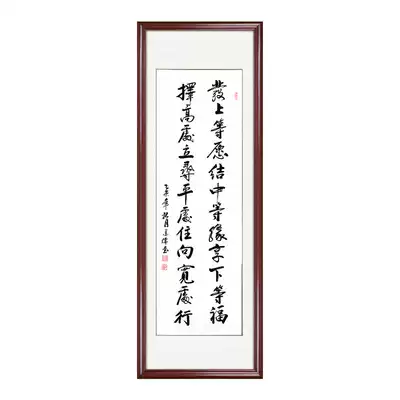 發上等愿结中等缘享下等福
擇高處立尋平處住向寬處行